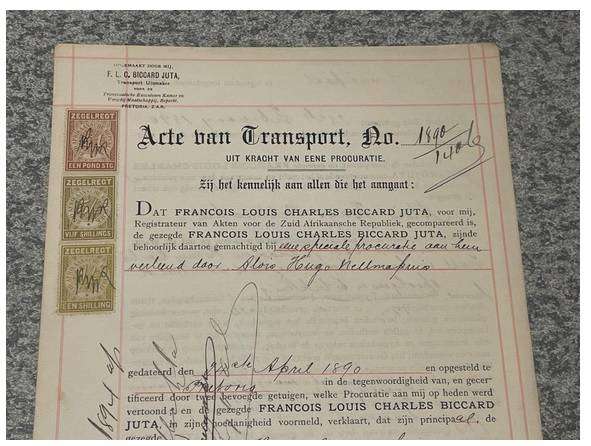 OPGEMAAKT DOOR MIJ,
F. L. C. BICCARD JUTA,
Transport Uitmaker
VOOR DE
Transvaalsche Executeurs Kamer en
Voogdij Maatschappij, Beperkt.
PRETORIA, Z.A.R.
ZEGELREGT
EEN POND STG
ZEGELREGT
VIJF SHILLINGS
ZEGELREGT
EEN SHILLING
Acte van Transport, No. 1890
UIT KRACHT VAN EENE PROCURATIE.
Zij het kennelijk aan allen die het aangaat:
DAT FRANCOIS LOUIS CHARLES BICCARD JUTA, voor mij,
Registrateur van Akten voor de Zuid Afrikaansche Republiek, gecompareerd is,
de gezegde FRANCOIS LOUIS CHARLES BICCARD JUTA, zijnde
behoorlijk daartoe gemachtigd bij eene speciale procuratie aan hem
verleend door Alois Hugo Nellmapius
gedateerd den April 1890 en opgesteld te
Pretoria in de tegenwoordigheid van, en gecer-
tificeerd door twee bevoegde getuigen, welke Procuratie aan mij op heden werd
vertoond en de gezegde FRANCOIS LOUIS CHARLES BICCARD
JUTA, in zijne hoedanigheid voormeld, verklaart, dat zijn principaal, de
gezegde